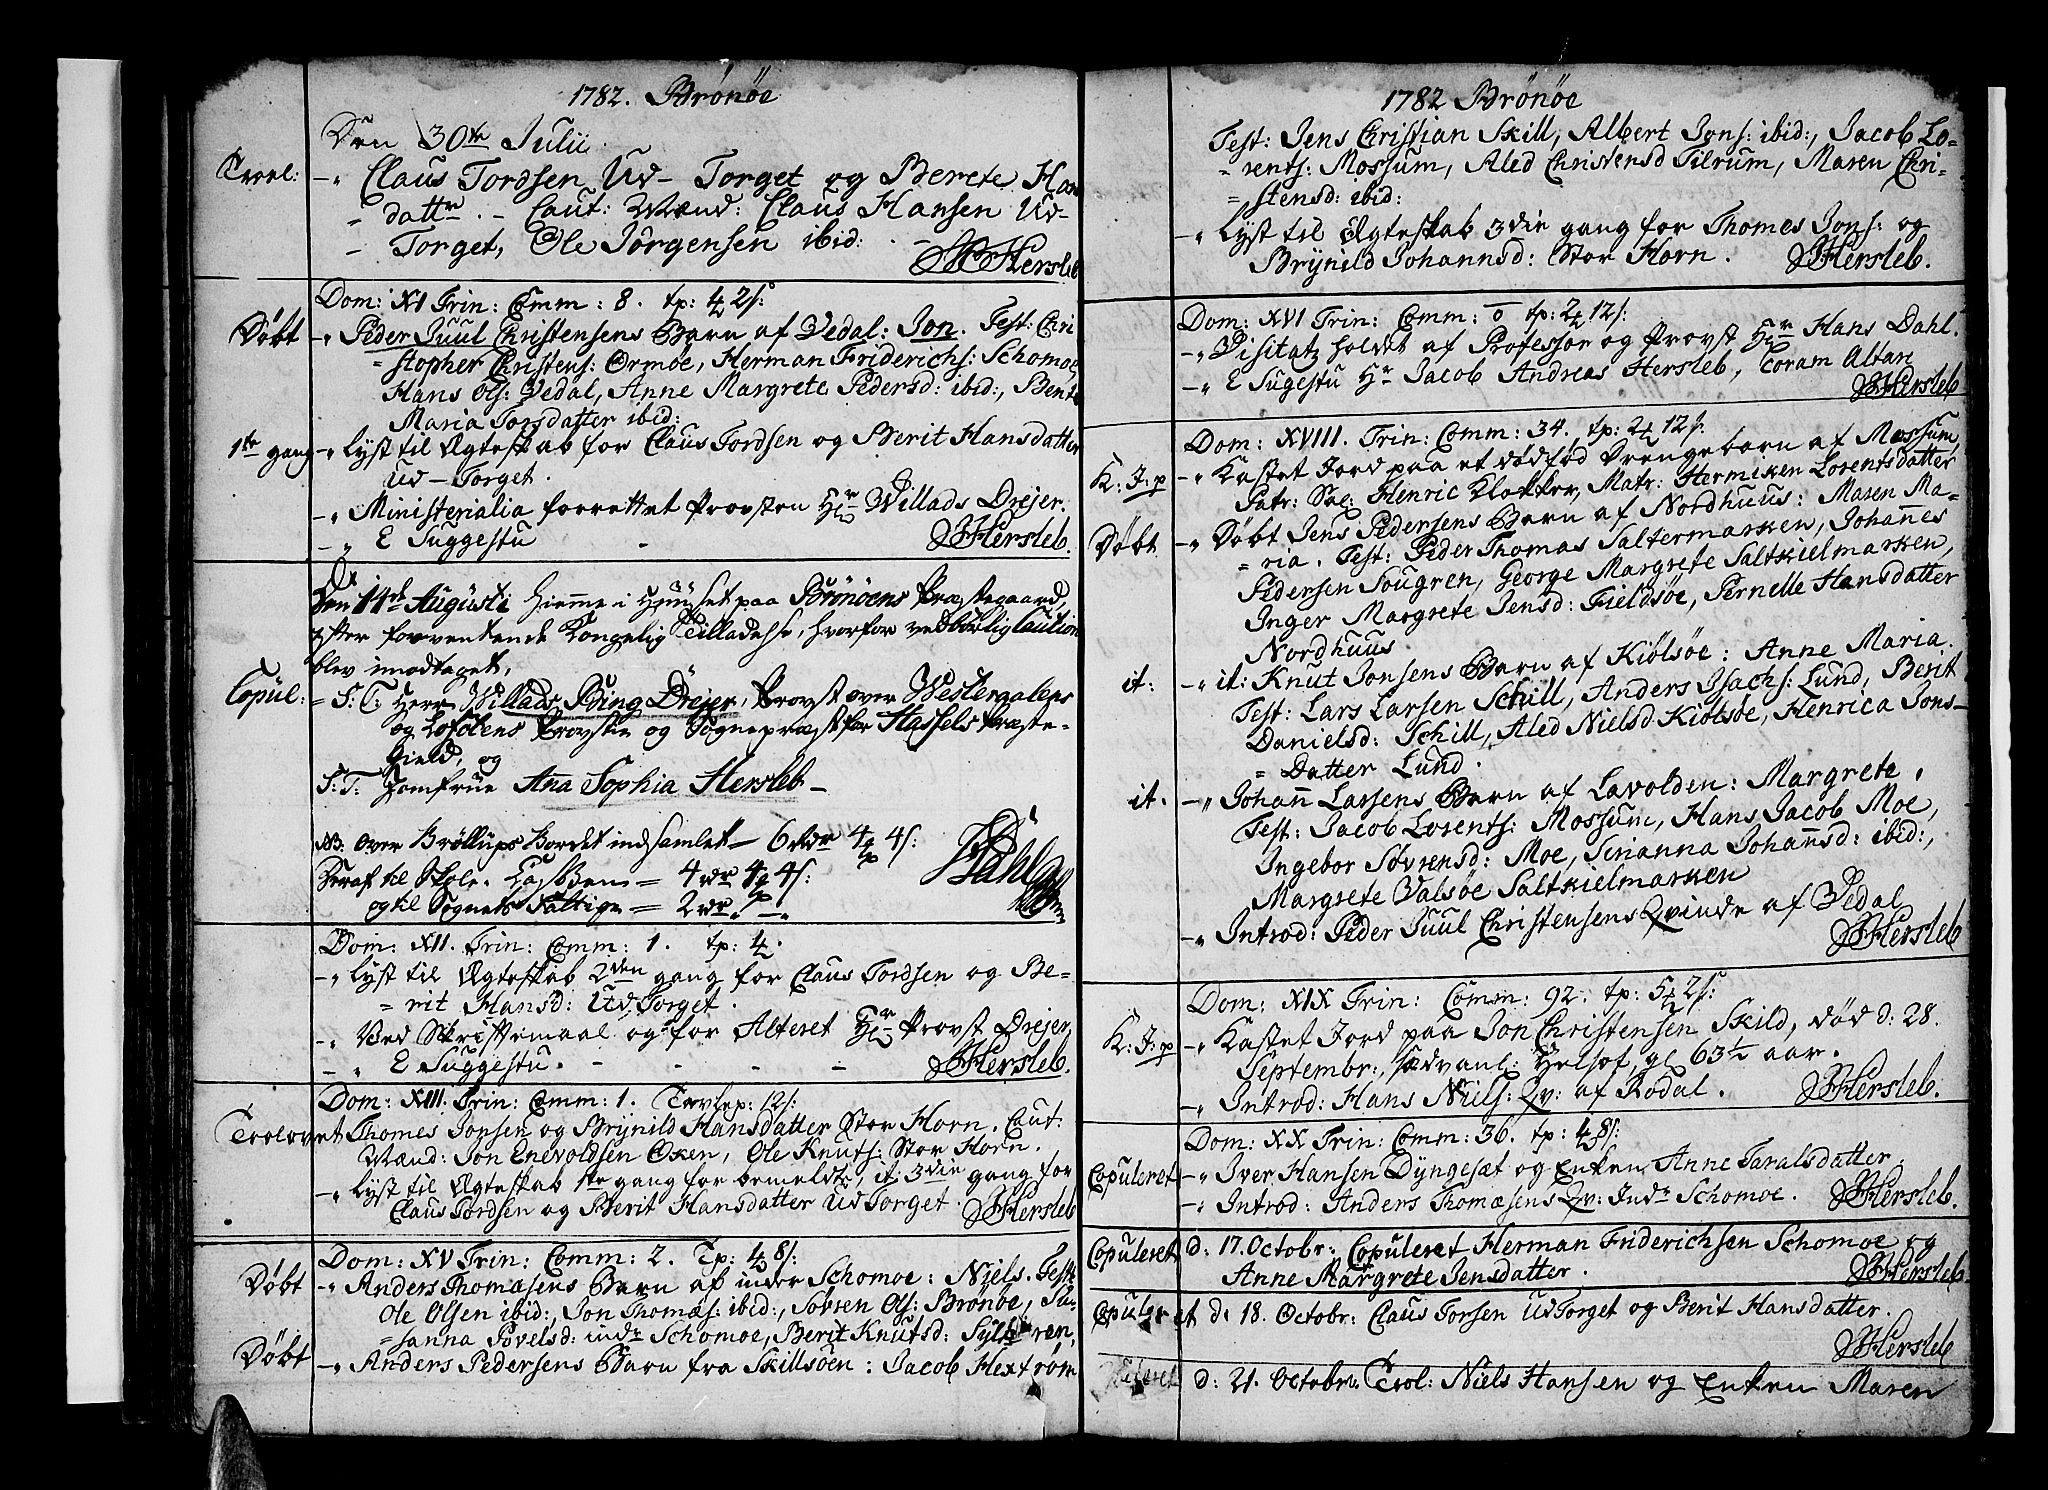 1782. Brönöe
Den 30te Julii.
Trol: -„ Claus Tordsen Ud-Torget og Berete Hans
datter. - Caut: Mænd: Claus Hansen Ud-
Torget, Ole Jörgensen ibid: JHersleb
Dom: XI Trin: Comm: 8. tp: 4 2s:
Döbt -„ Peder Juul Christensens Barn af Vedal: Jon. Test: Chri
= stopher Christens: Ormöe, Herman Friderichs: Schomoe,
Hans Ols: Vedal, Anne Margrete Pedersd: ibid:, Bente
Maria Torsdatter ibid:
1te gang -„ Lyst til Ægteskab for Claus Tordsen og Berit Hansdatter
Ud-Torget.
-„ Ministerialia forrettet Provsten Hr Willads Drejer.
-„ E Suggestu - JHersleb.
Den 14de Augusti hiemme i Huuset paa Brönöens Præstegaard,
efter forventende Kongelig Tilladelse, hvorfor vedbörlig Caution
blev imodtaget,
Copul: = S:T: Herr Willads Bing Drejer, Provst over Westeraalens
og Lofodens Provstie og Sognepræst for Hassels Præste-
gield, og
S:T: Jomfrue Ana Sophia Hersleb -
NB. over Bröllups Bordet indsamlet - 6 rdr 4 4s:
Deraf til Skole-Cassen = 4 rdr 4 4s: Dahl
og til Sognets Fattige = 2 rdr „ - „
Dom: XII. Trin: Comm: 1. tp: 4.
-„ Lyst til Ægteskab 2den gang for Claus Tordsen og Be-
= rit Hansd: Ud Torget.
-„ Ved Skriftemaal og for Alteret Hr Provst Drejer,
-„ E Suggestu. - - - - JHersleb.
Dom: XIII. Trin: Comm: 1. Tavlep: 12s:
Trolovet Thomes Jonsen og Brynild Hansdatter Stor Horn. Caut:
Mænd: Jon Enevoldsen Oxen, Ole Knuts: Stor Horn.
-„ Lyst til Ægteskab 1te gang for bemeldte, it: 3die gang for
Claus Tordsen og Berit Hansdatter Ud Torget. JHersleb
Dom: XV Trin: Comm: 2. Tp: 4 8s:
Döbt -„ Anders Thomæsens Barn af inder Schomoe: Niels. Test:
Ole Olsen ibid:, Jon Thomæs: ibid:, Sövren Ols: Brönöe, Su-
= sanna Povelsd: indr Schomoe, Berit Knutsd:
Döbt -„ Anders Pedersens Barn fra Skillsöen: Jacob Hextröm
1782 Brönöe
Test: Jens Christian Skill, Albert Jons: ibid:, Jacob Lo-
= rents: Mossum, Aled Christensd Tilrum, Maren Chri-
= stensd: ibid:
-„ Lyst til Ægteskab 3die gang for Thomes Jons: og
Brynild Johannsd: Stor Horn. JHersleb.
Dom: XVI Trin: Comm: o tp: 2 12s:
-„ Visitatz holdet af Professor og Provst Hr Hans Dahl.
-„ E Sugestu Hr Jacob Andreas Hersleb, coram Altari
JHersleb
Dom: XVIII. Trin: Comm: 34. tp: 2 12s:
K: J: p -„ Kastet Jord paa et dödföd Drengebarn af Mossum,
Patr: Sac: Henric Klokker, Matr: Hermiken Lorentsdatter
Döbt -„ Döbt Jens Pedersens Barn af Nordhuus: Maren Ma-
= ria. Test: Peder Thomas Saltermarken, Johannes
Pedersen Sougren, George Margrete Saltkielmarken,
Inger Margrete Jensd: Fieldsöe, Pernelle Hansdatter
Nordhuus
it: -„ it: Knut Jonsens Barn af Kiölsöe: Anne Maria.
Test: Lars Larsen Schill, Anders Isachs: Lund, Berit
Danielsd: Schill, Aled Nielsd Kiölsöe, Henrica Jons-
= Datter Lund.
it. -„ Johann Larsens Barn af Lavolden: Margrete.
Test: Jacob Lorents: Mossum, Hans Jacob Moe,
Ingebor Sövrensd: Moe, Serianna Johannsd: ibid:,
Margrete Valsöe Saltkielmarken
-„ Introd: Peder Juul Christensens Qvinde af Vedal
JHersleb
Dom: XIX Trin: Comm: 92. tp: 5 2s:
K: J: p -„ Kastet Jord paa Jon Christensen Skild, död d: 28.
Septembr:, sædvanl: Helsot, gl 63½ aar.
-„ Introd: Hans Niels: Qv: af Rodal. JHersleb.
Dom: XX Trin: Comm: 36. tp: 4 8s:
Copuleret -„ Iver Hansen Dyngesæt og Enken Anne Taralsdatter.
-„ Introd: Anders Thomæsens Qv: Indr Schomoe. JHersleb.
Copuleret d: 17. Octobr: Copuleret Herman Friderichsen Schomoe og
Anne Margrete Jensdatter. JHersleb
Copuleret d: 18. Octobr: Claus Torsen Ud Torget og Berit Hansdatter.
JHersleb
d: 21. Octobr: Trol: Niels Hansen og Enken Maren